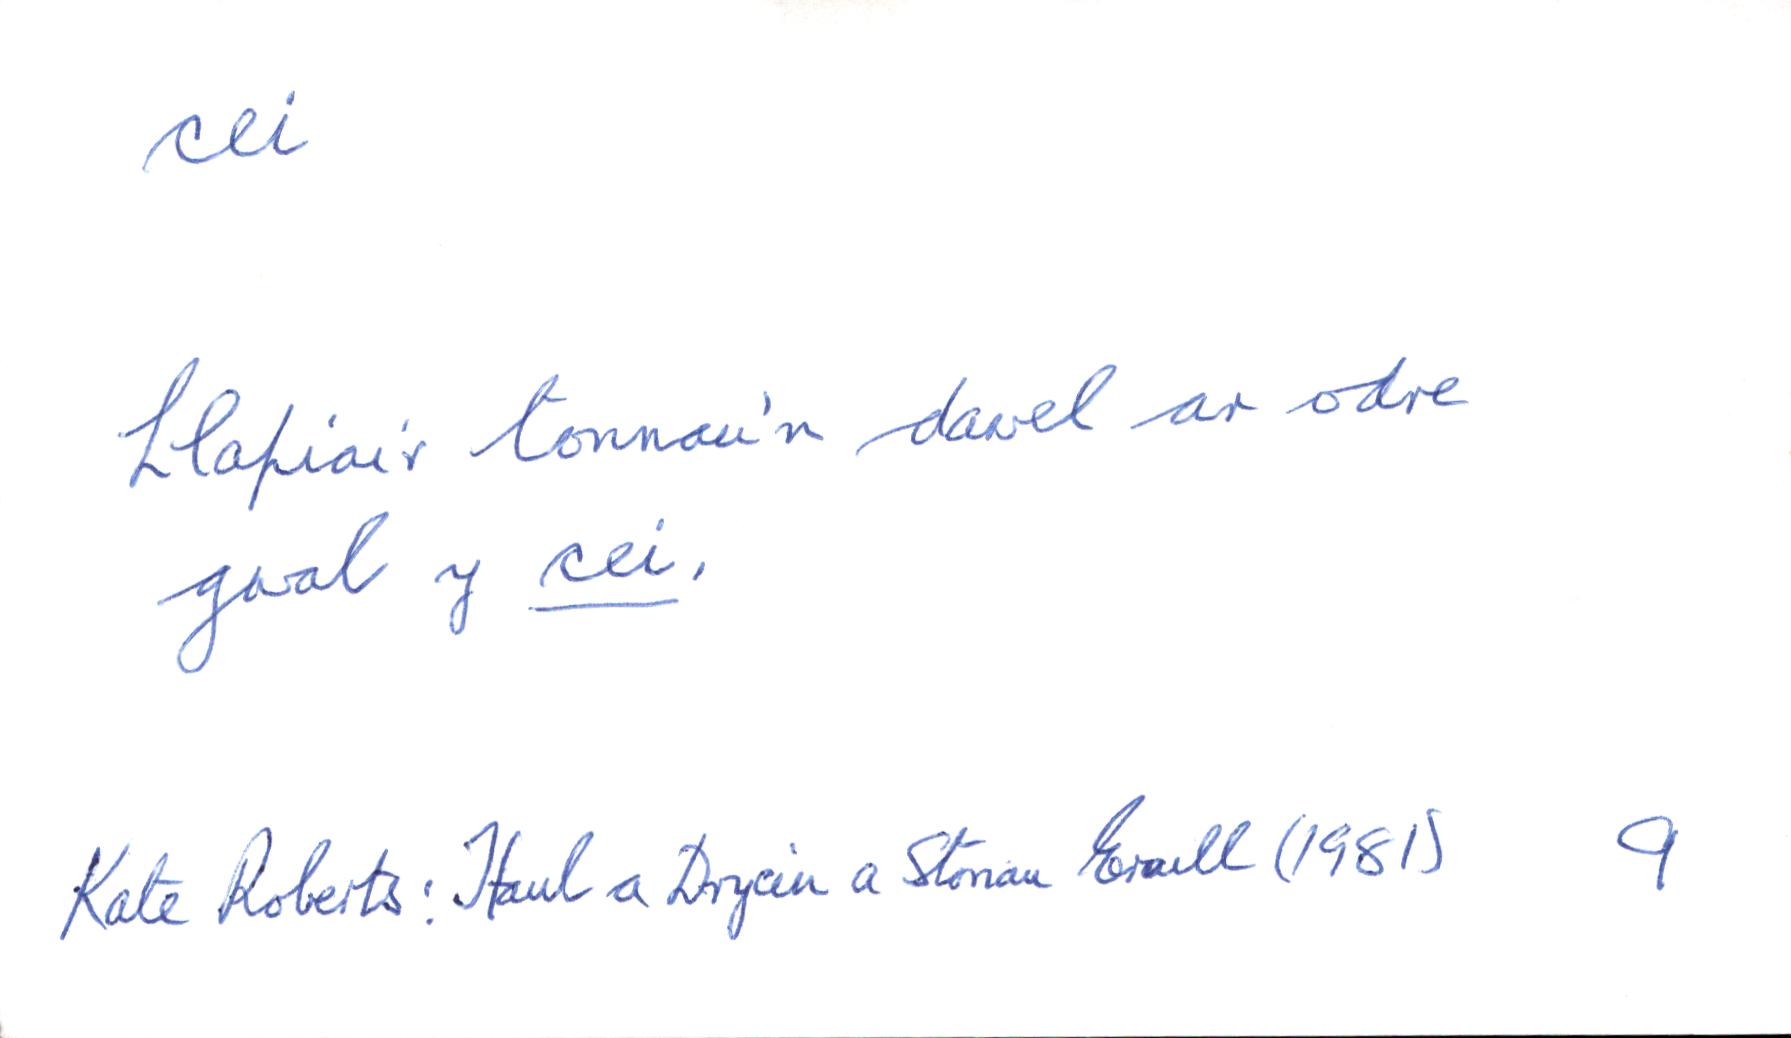 cei
Llapiai'r tonnau'n dawel ar odre
gwal y cei.
Kate Roberts: Haul a Drycin a Storïau Eraill (1981) 9